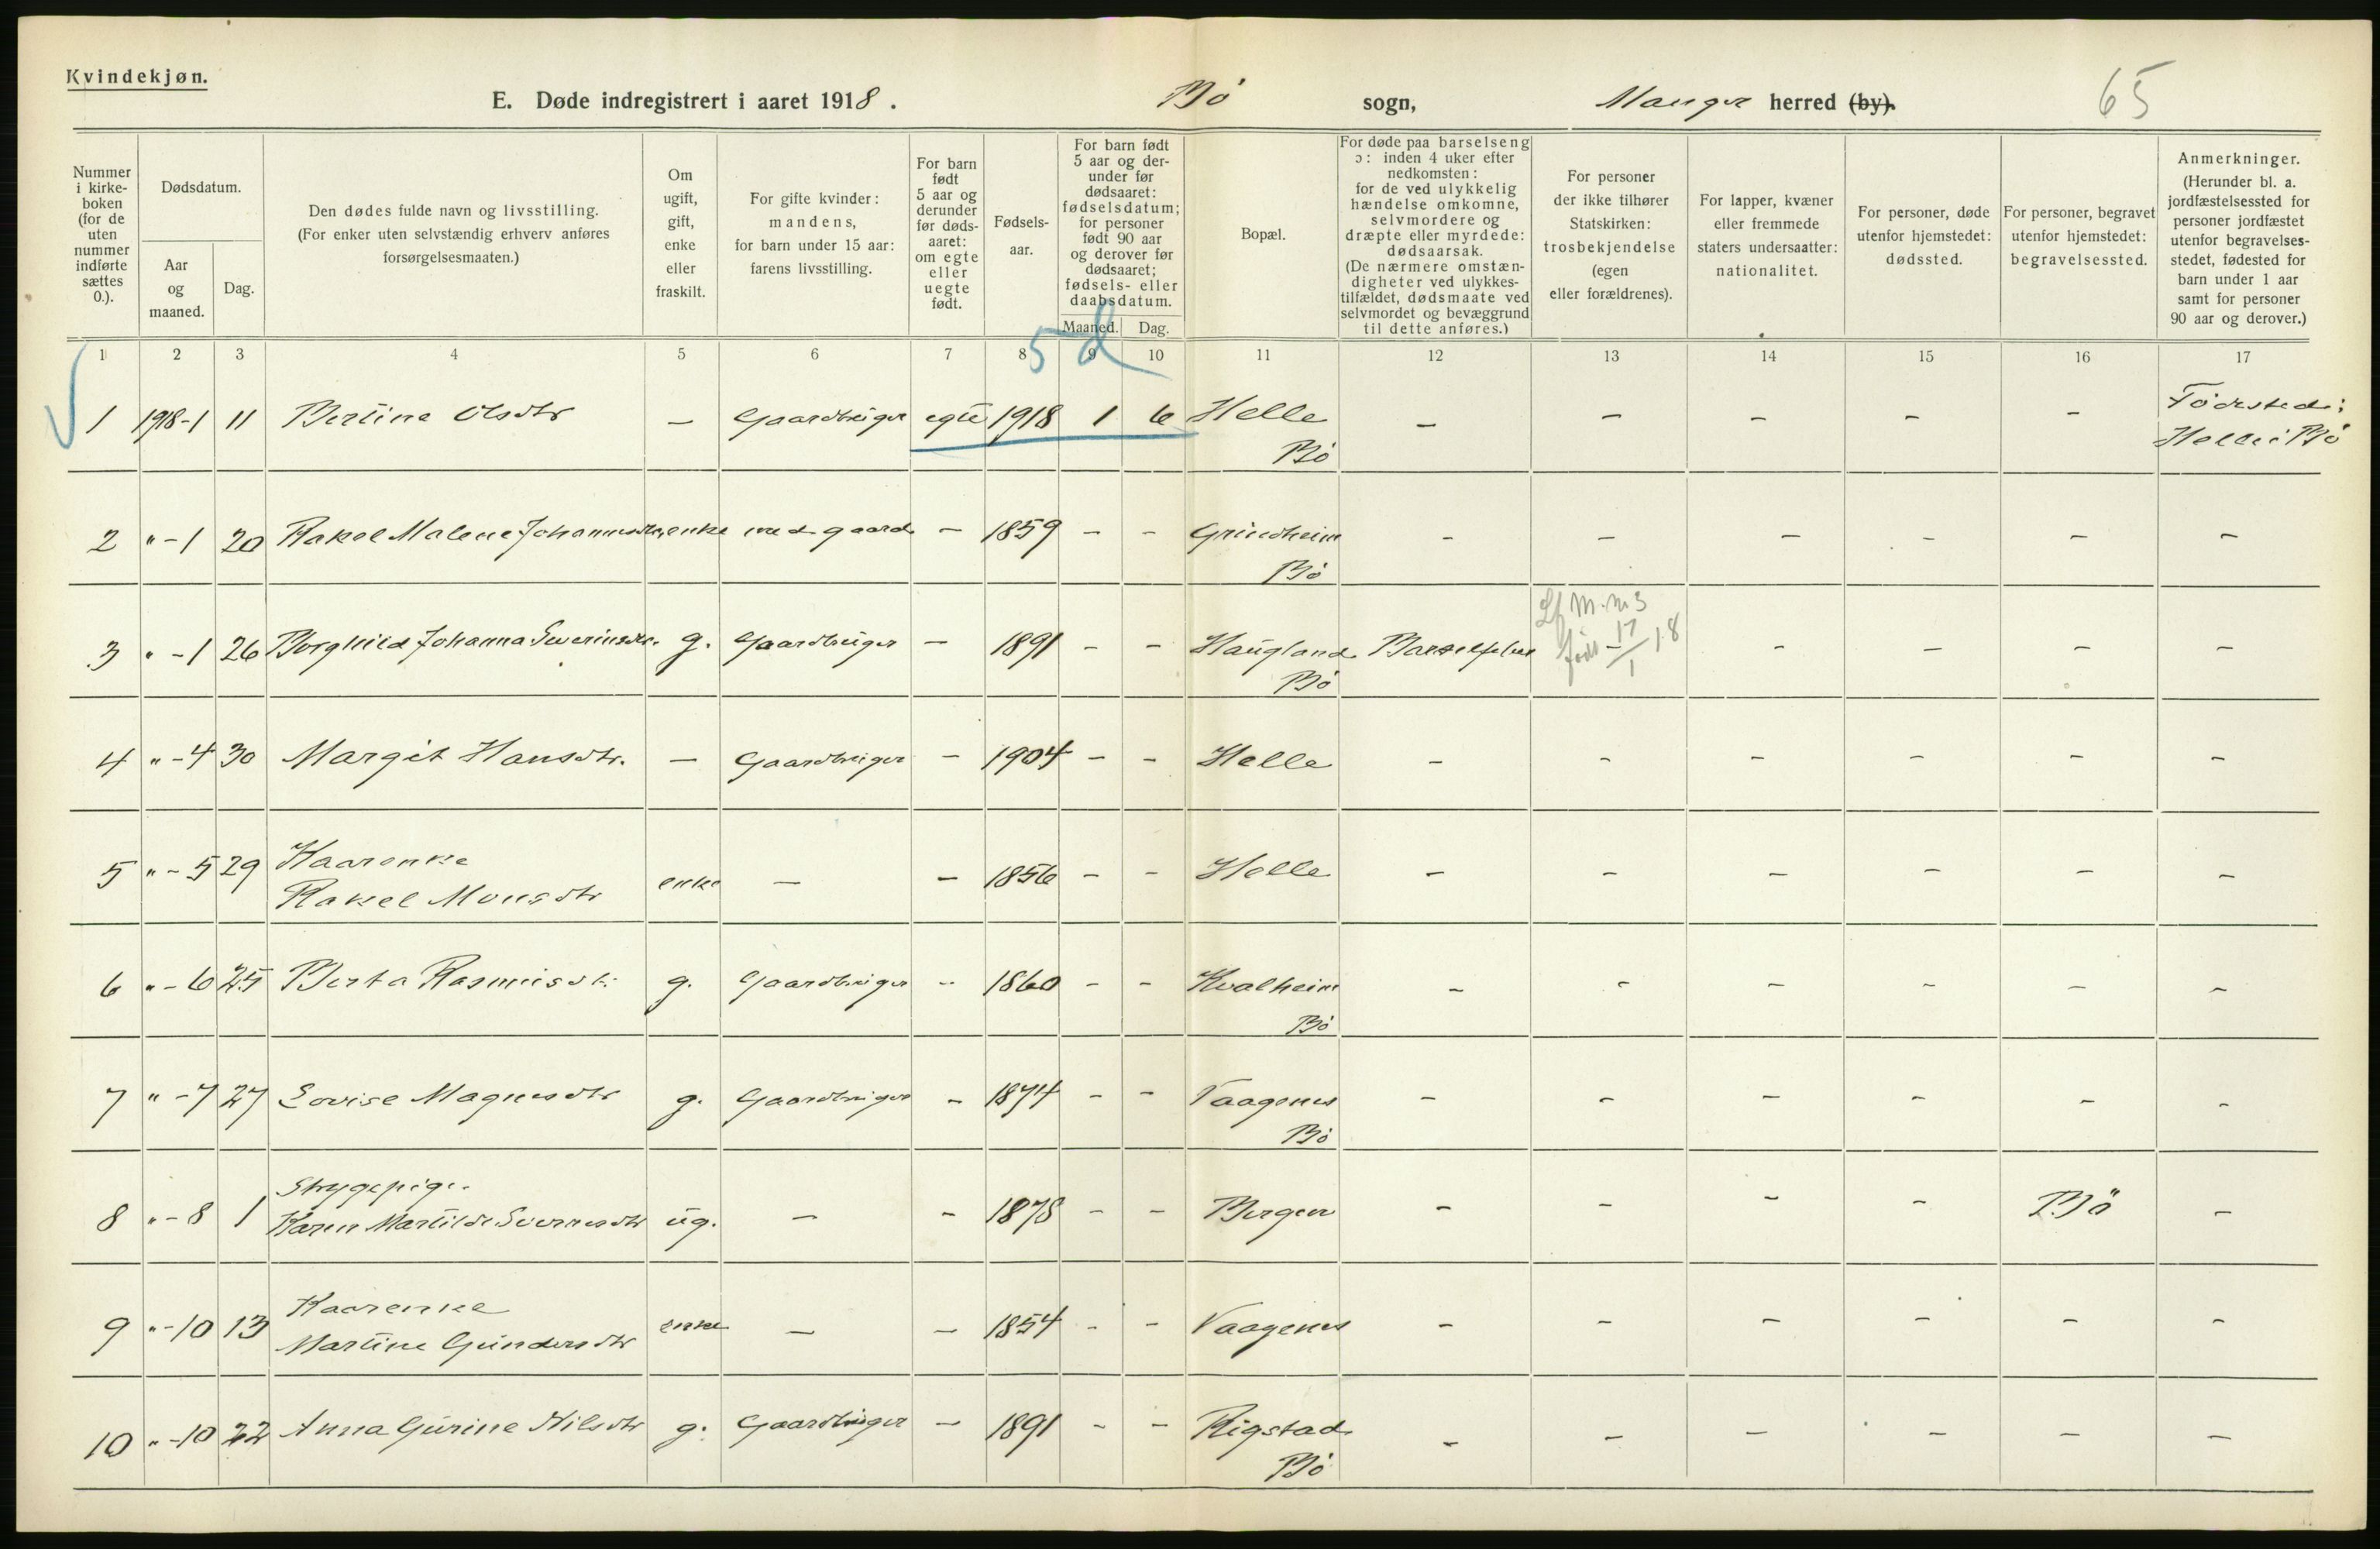 Kvindekjøn.
E. Døde indregistrert i aaret 1918. Bö sogn, Manger herred (by).
65
Nummer i kirke-boken (for de uten nummer indførte sættes 0.).
Dødsdatum.
Aar og maaned.
Dag.
Den dødes fulde navn og livsstilling.
(For enker uten selvstændig erhverv anføres forsørgelsesmaaten.)
Om ugift, gift, enke eller fraskilt.
For gifte kvinder: mandens, for barn under 15 aar: farens livsstilling.
For barn født 5 aar og derunder før døds-aaret: om egte eller uegte født.
Fødsels-aar.
For barn født 5 aar og der-under før dødsaaret: fødselsdatum; for personer født 90 aar og derover før dødsaaret; fødsels- eller daabsdatum.
Maaned.
Dag.
Bopæl.
For døde paa barselseng ɔ: inden 4 uker efter nedkomsten: for de ved ulykkelig hændelse omkomne, selvmordere og dræpte eller myrdede: dødsaarsak. (De nærmere omstæn-digheter ved ulykkes-tilfældet, dødsmaate ved selvmordet og bevæggrund til dette anføres.)
For personer der ikke tilhører Statskirken: trosbekjendelse (egen eller forældrenes).
For lapper, kvæner eller fremmede staters undersaatter: nationalitet.
For personer, døde utenfor hjemstedet: dødssted.
For personer, begravet utenfor hjemstedet: begravelsessted.
Anmerkninger.
(Herunder bl. a. jordfæstelsessted for personer jordfæstet utenfor begravelses-stedet, fødested for barn under 1 aar samt for personer 90 aar og derover.)
1 2 3 4 5 6 7 8 9 10 11 12 13 14 15 16 17
5 d
1 1918-1 11 Bertine Olsdtr - Gaardbruger egte 1918 1 6 Helle Bö - - - - - Födested: Helle i Bö
2 " - 1 20 Rakel Malene Johannesdtr, enke med gaard - 1859 - - Grindheim Bö - - - - - -
3 " - 1 26 Borghild Johanna Severinsdtr. g. Gaardbruger - 1891 - - Haugland Bö Barselfeber - - - -
Lf M. nr 3
født 17/1 18
4 " - 4 30 Margit Hansdtr. - Gaardbruger - 1904 - - Helle - - - - - -
5 " - 5 29 Kaarenke
Rakel Monsdtr enke - - 1856 - - Helle - - - - - -
6 " - 6 25 Berta Rasmusdtr. g. Gaardbruger - 1860 - - Kvalheim Bö - - - - - -
7 " - 7 27 Lovise Magnusdtr g. Gaardbruger - 1874 - - Vaagenes Bö - - - - - -
8 " - 8 1 Strygepige
Karen Martilde Sverresdtr ug. - - 1878 - - Bergen - - - - Bö -
9 " - 10 13 Kaarenke
Martine Gundersdtr enke - - 1854 - - Vaagenes - - - - - -
10 " - 10 22 Anna Gurine Nilsdtr g. Gaardbruger - 1891 - - Rigstad Bö - - - - - -